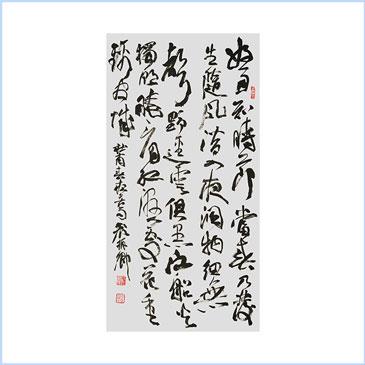 好雨知時節當春乃發
生隨風潛入夜潤物細無
聲野徑雲俱黑江船火
獨明曉看紅濕處花重
錦官城 杜甫春夜喜雨